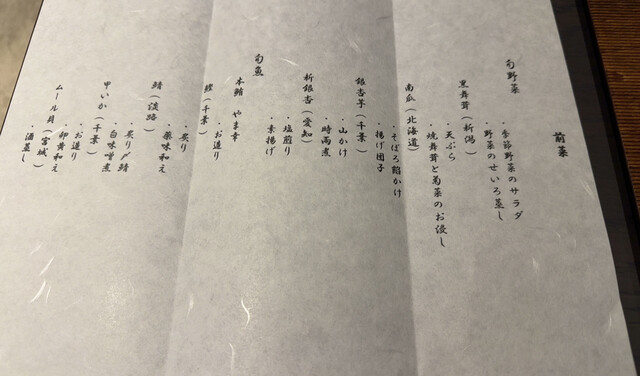 前菜
旬野菜
・季節野菜のサラダ
・野菜のせいろ蒸し
黒舞茸(新潟)
・天ぷら
・焼舞茸と菊菜のお浸し
南瓜(北海道)
・そぼろ餡かけ
・揚げ団子
銀杏芋(千葉)
・山かけ
・時雨煮
新銀杏(愛知)
・塩煎り
・素揚げ
旬魚
本鮪 やま幸
・お造り
鰹(千葉)
・炙り
・薬味和え
鯖(淡路)
・炙り〆鯖
・白味噌煮
甲いか(千葉)
・お造り
・卵黄和え
ムール貝(宮城)
・酒蒸し